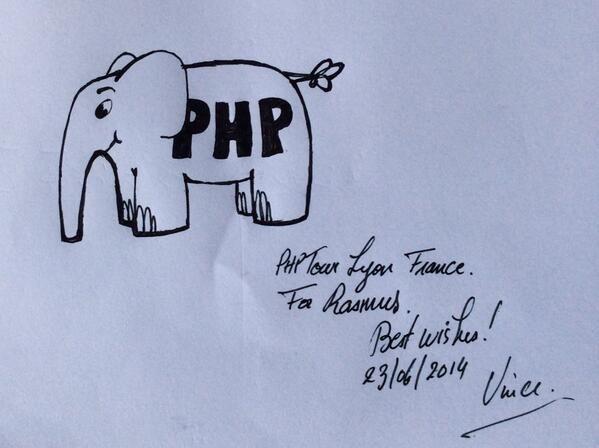 PHP
PHP Tour Lyon France.
For Rasmus.
Best wishes!
23/06/2014
Vince.